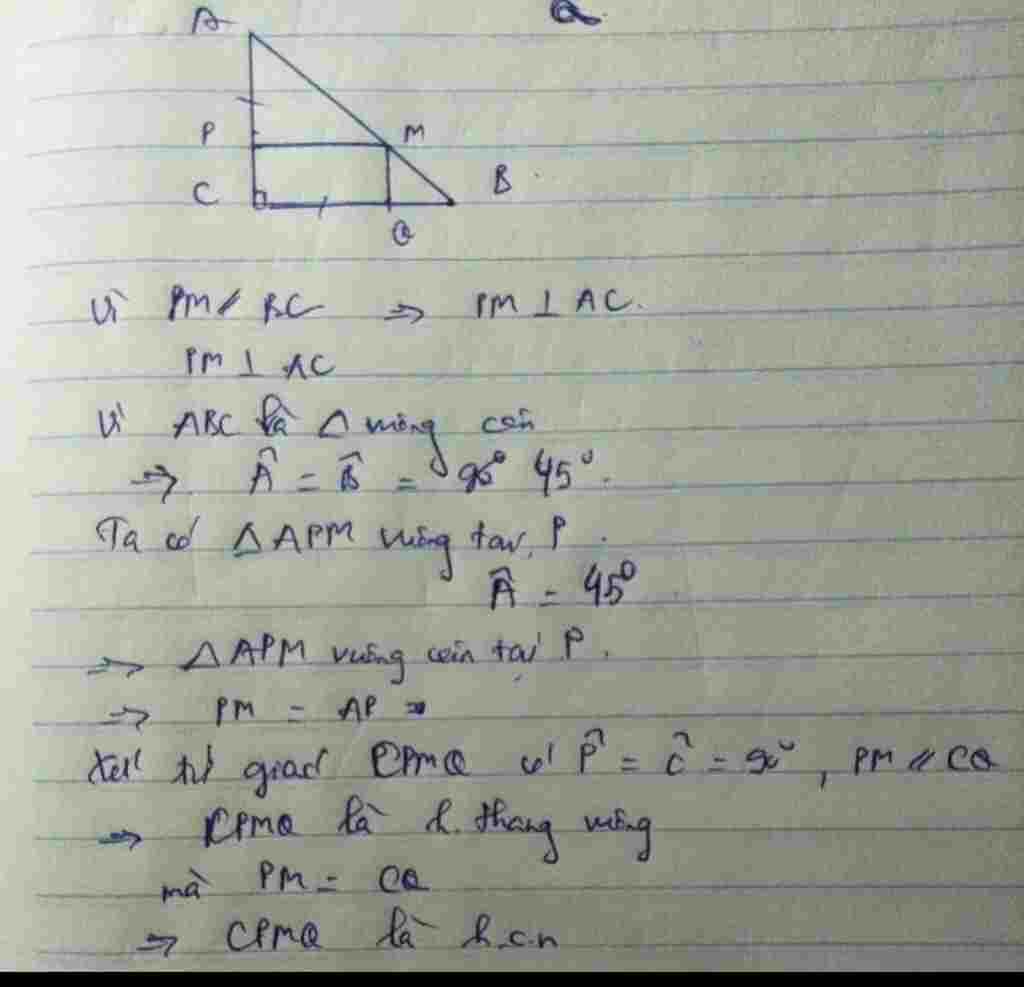 a.
A
P
M
C
B
Q
Vì PM // BC => PM ⊥ AC.
PM ⊥ AC
Vì ABC là Δ vuông cân
=> Â = B̂ = 90° 45°.
Ta có ΔAPM vuông tại P.
Â = 45°
=> ΔAPM vuông cân tại P.
=> PM = AP
Xét tứ giác CPMQ có P̂ = Ĉ = 90°, PM // CQ
=> CPMQ là h. thang vuông
mà PM = CQ
=> CPMQ là h.c.n